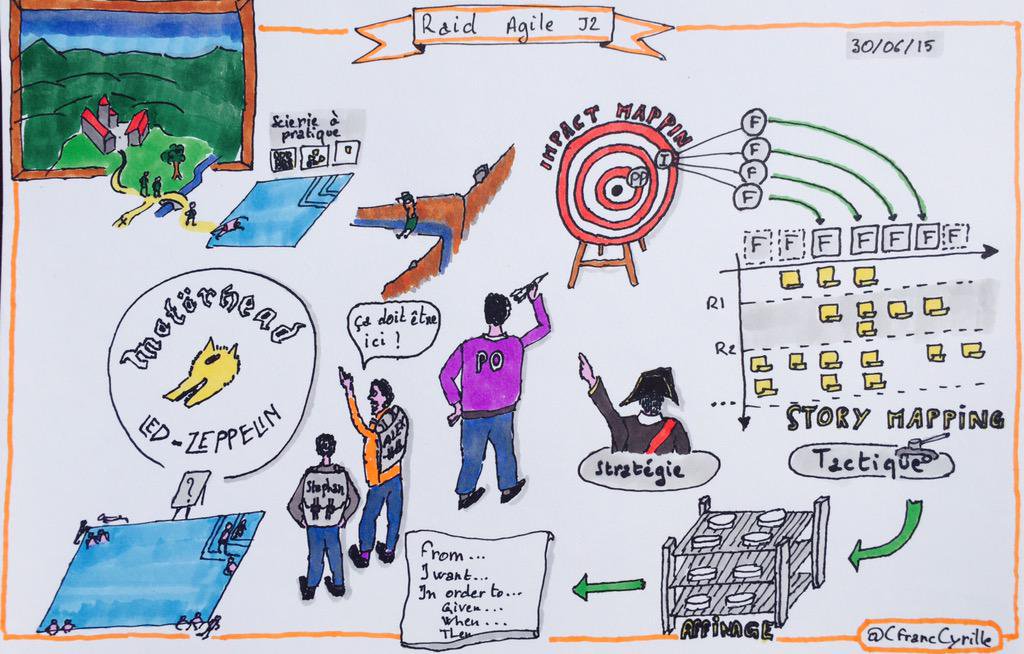 Raid Agile J2
30/06/15
Scierie à
pratique
IMPACT MAPPIN
F
F
F
F
I
PP
F F F F F F F
R1
R2
...
STORY MAPPING
Tactique
Motörhead
LED-ZEPPELIN
?
ça doit être
ici !
PO
Stephan
Stratégie
From...
I want...
In order to...
Given...
When...
Then
AFFINAGE
@CfrancCyrille